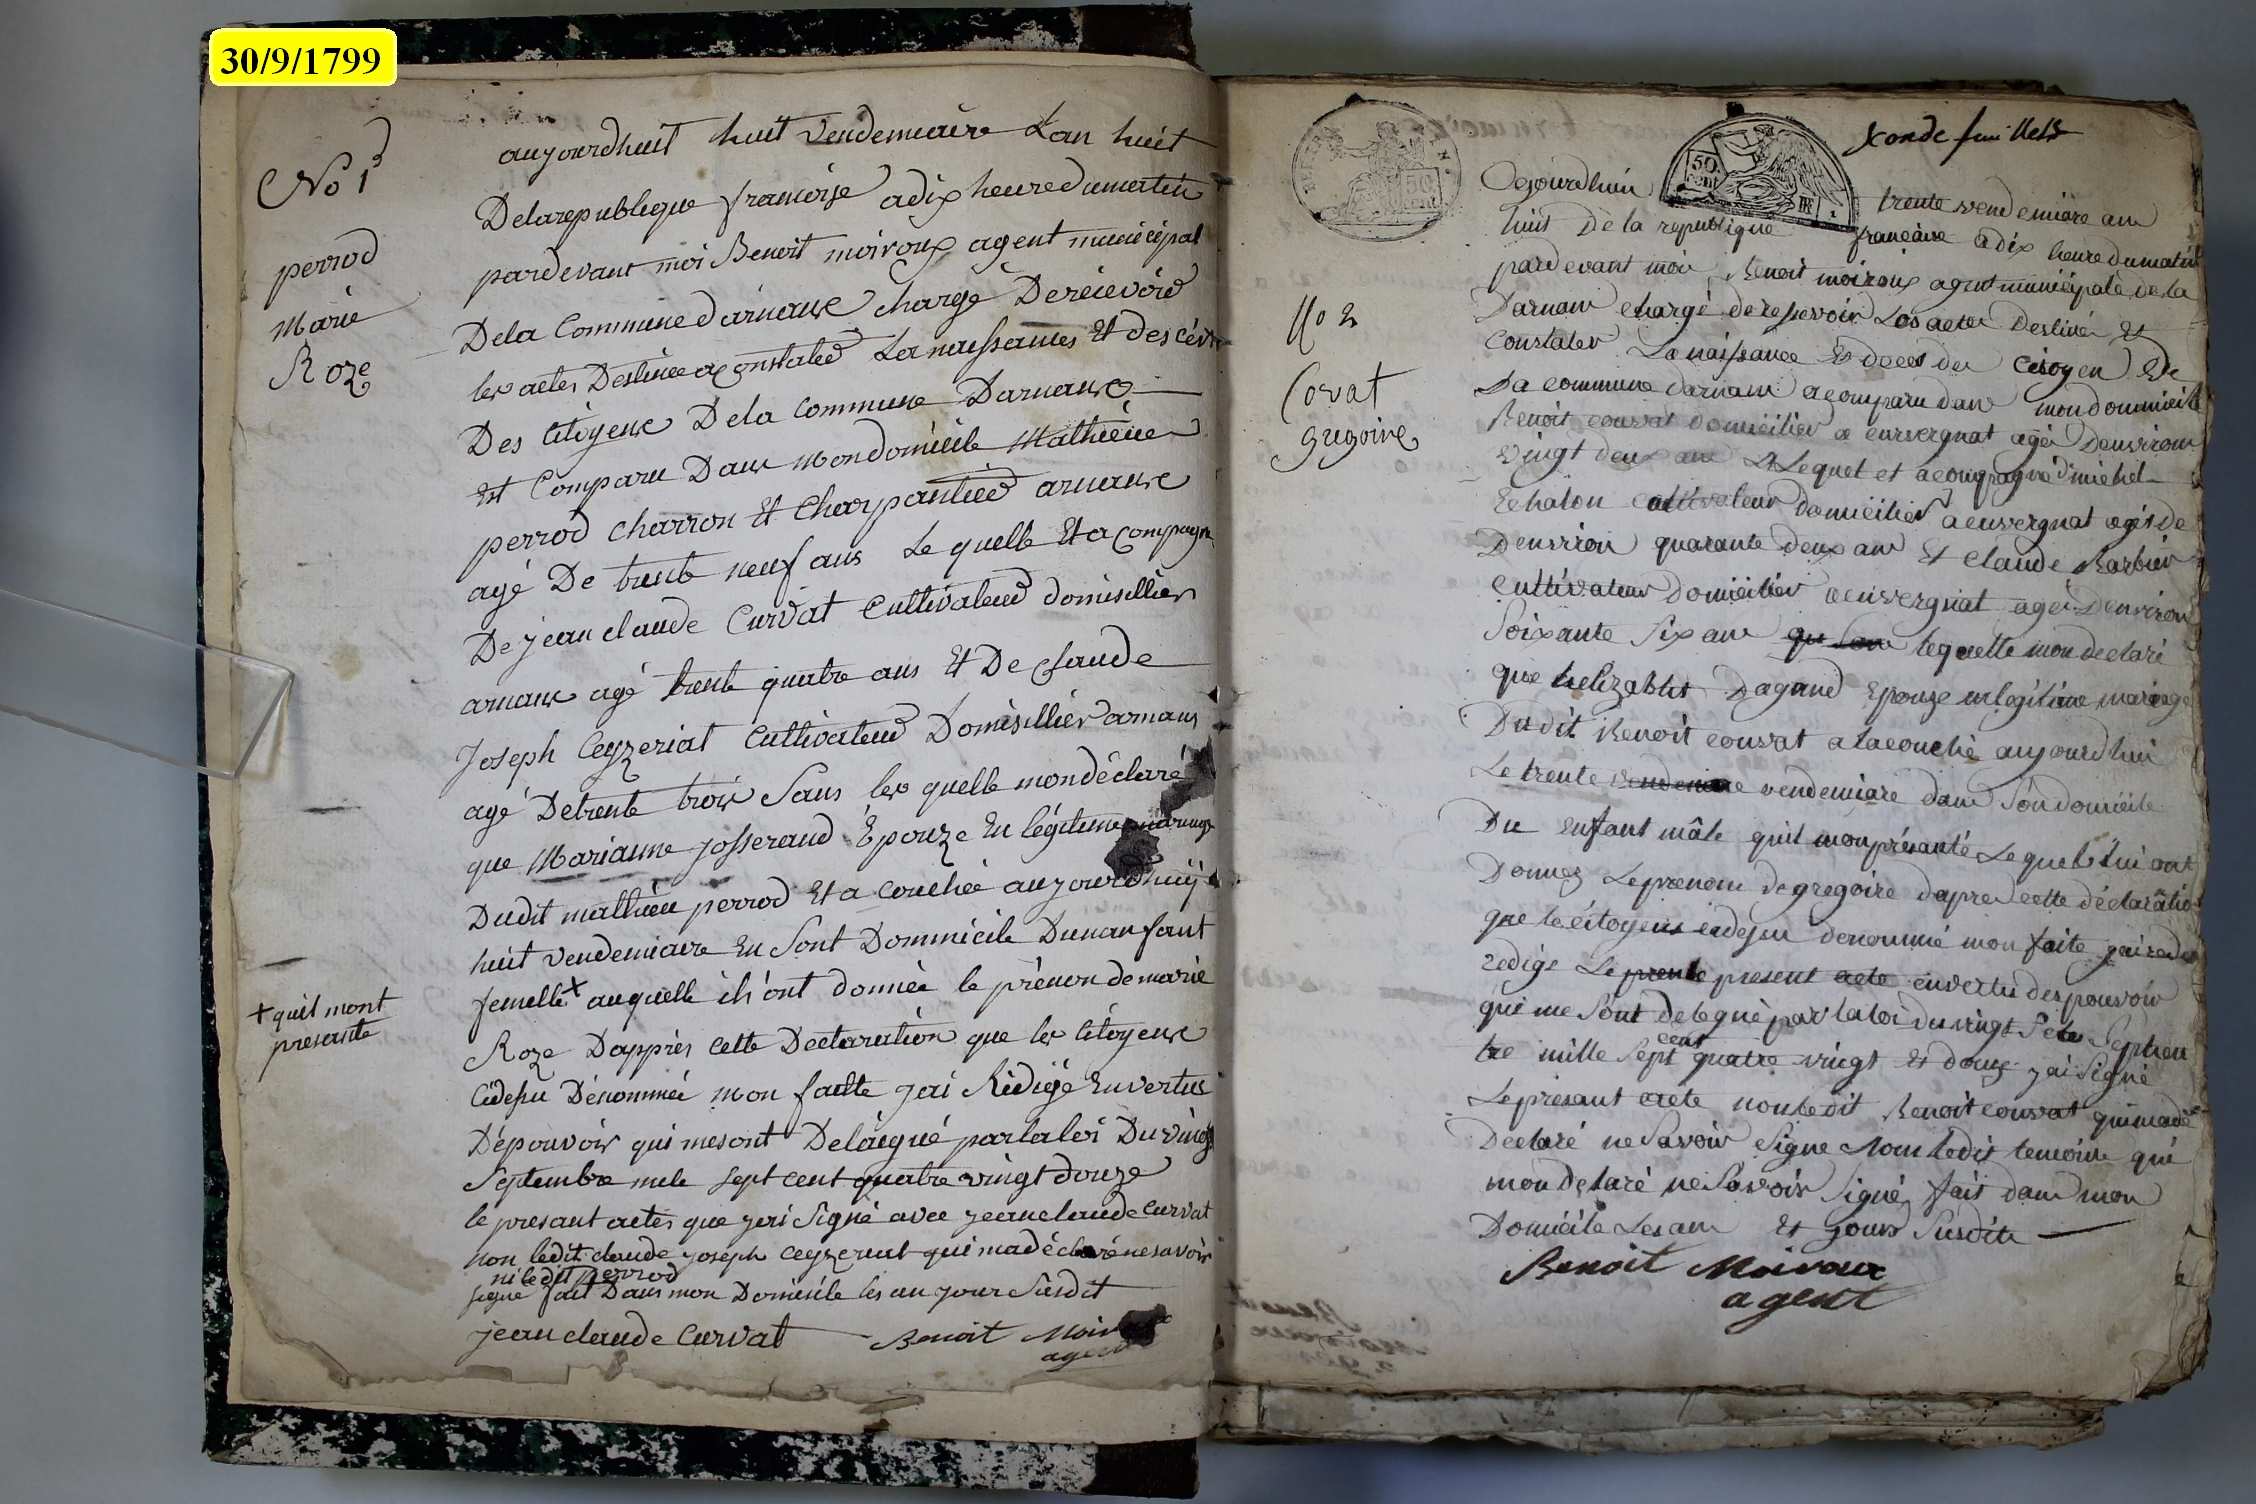 30/9/1799
No 1
perrod
Marie
Roze
aujourdhuit huit vendemiaire Lan huit
Delarepublique francoise adix heure dumatin
pardevant moi Benoit moiroux agent municipal
Dela Commune darnaux chargé De récevoir
les actes Destinée a constater La naissances Et des décès
Des Citoyens De la Commune Darnaux
Est Comparu Dans mon domicile Mathieu
perrod charron Et charpantier arnaux
agé De trente neuf ans Le quelle Et acompagné
De jean claude Curvat Cultivateur domisillier
arnaux agé trente quatre ans Et De claude
Joseph Ceyzeriat Cultivateur Domisillier arnaux
agé De trente trois Sans les quelle mon déclaré
que Marianne josserand Épouze En légitime mariage
Dudit mathieu perrod Et a couchée aujourdhuij
huit vendemiaire En Sont Dommicile Dunanfant
femelle + auquelle ils ont donnée le prénon de marie
+ quil mont
presante
Roze Dapprès Cette Declaration que les Citoyens
Cidesu Dénommée mon faitte jai Rédigé En vertue
Dépouvoir qui mesont Delaigué par la loi Du vingt
Septembre mele sept cent quatre vingt douze
le presant actes que jai Signé avec jean claude Curvat
non ledit claude joseph ceyzeriat qui ma déclaré ne savoir
ni ledit perrod
signé fait Dans mon Domicile les an jour Susdit
jean claude Curvat Benoit Moiroux
agent
xonde feuillets
50
cent
No 2
Covat
gregoire
Cejourdhui trente vendemiare an
huit De la republique francaise adix heure dumatin
pardevant moi Benoit moiroux agent municipale de la
Darnaux chargé de ressevoir Los actes Destiné Et
Constater La naissance Et deces des Citoyen De
La commune darnaux a comparu dans mon dommicile
Benoit couvat domicilier a euvergnat agé Denviron
vingt deux ans Lequel et acompagné dmichel
Echalon cultivateur domicilier a euvergnat agés de
Denviron quarante deux ans Et claude Barbier
cultivateur domicilier a euvergnat agé Denviron
Soixante Six ans lequelle mon declaré
que helizabht Dagand Epouze en legitime mariage
Dudit Benoit couvat alacouche aujourdhui
Le trente vendemiare dans Son domicile
Du Enfant mâle quil mon présanté Lequels lui ont
Donnez Leprenom de gregoire dapres cette déclaratio
que les citoyens cidesu denommé mon faite jai red
redige Le present acte envertu des pouvoir
qui me Sont delegué par la loi du vingt Sete Septem
cent
bre mille Sept quatre vingt Et douz jai Signé
Le présant acte non ledit Benoit couvat qui made
Declaré ne Savoir Signe Non ledit temoins qui
mon delaré ne Savoir Signé fait dans mon
Domicile Les an Et jours Susdit
Benoit Moiroux
agent